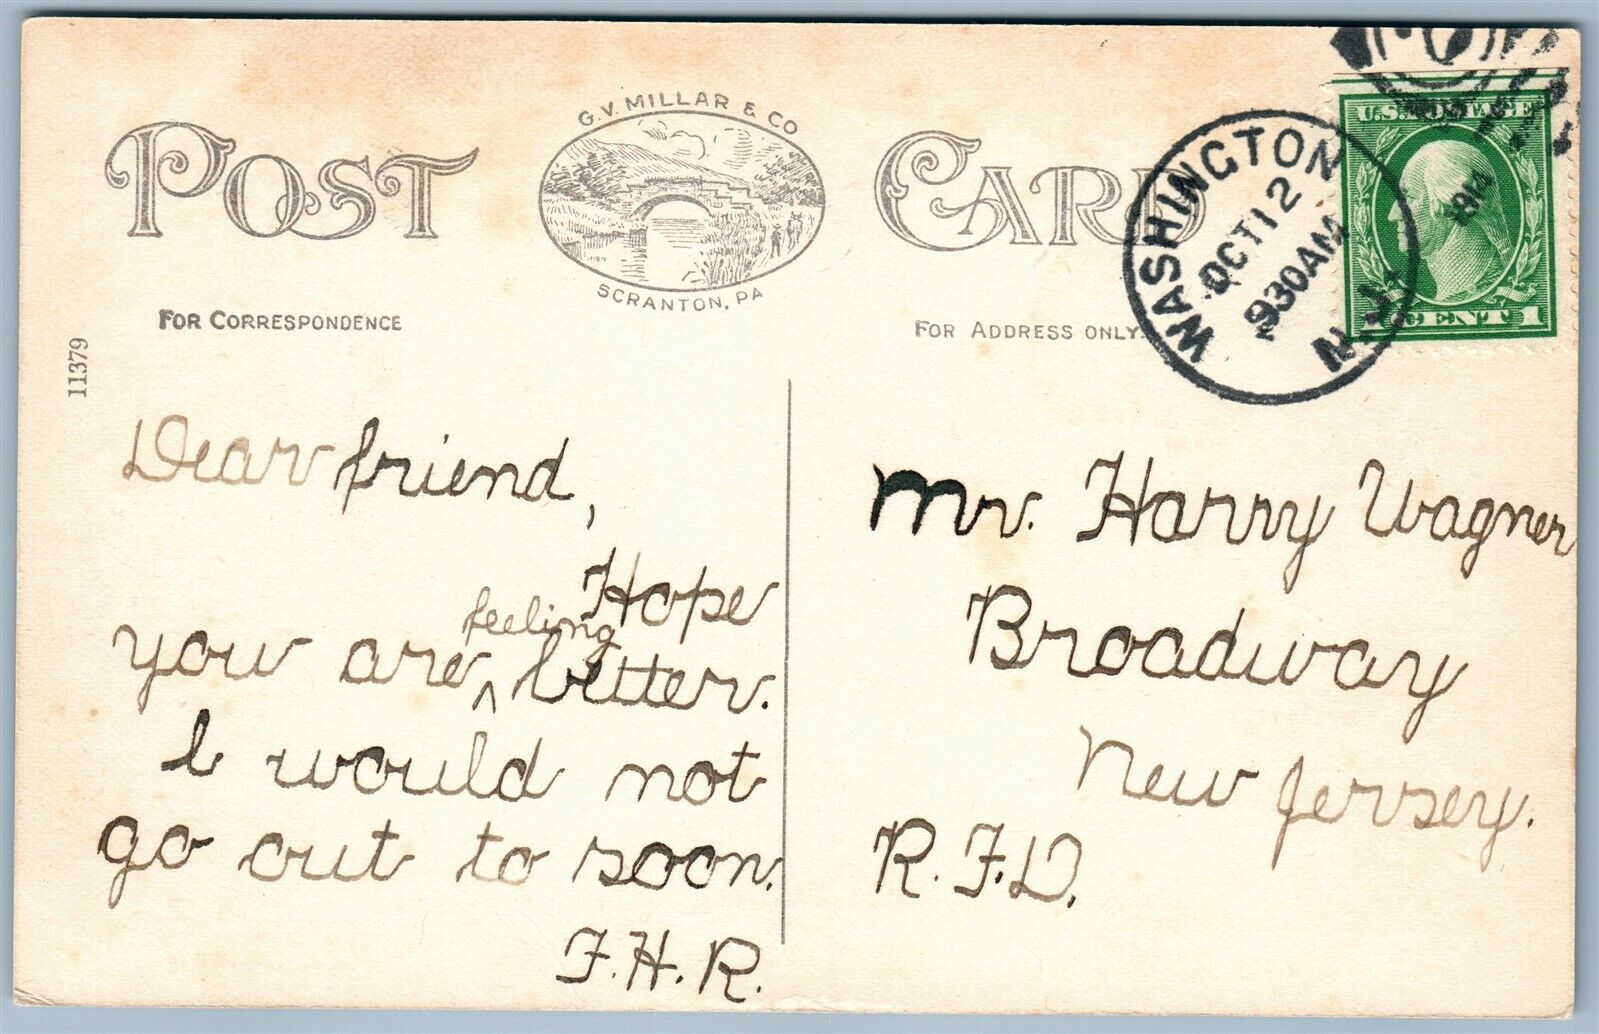 POST CARD
G.V. MILLAR & CO
SCRANTON, PA
FOR CORRESPONDENCE
FOR ADDRESS ONLY.
11379
WASHINGTON
OCT 12
930AM
N.J.
1914
CENT 1
Dear friend,
Hope
feeling
you are ^ better.
I would not
go out to soon.
F.H.R.
Mr. Harry Wagner
Broadway
New Jersey.
R.F.D.